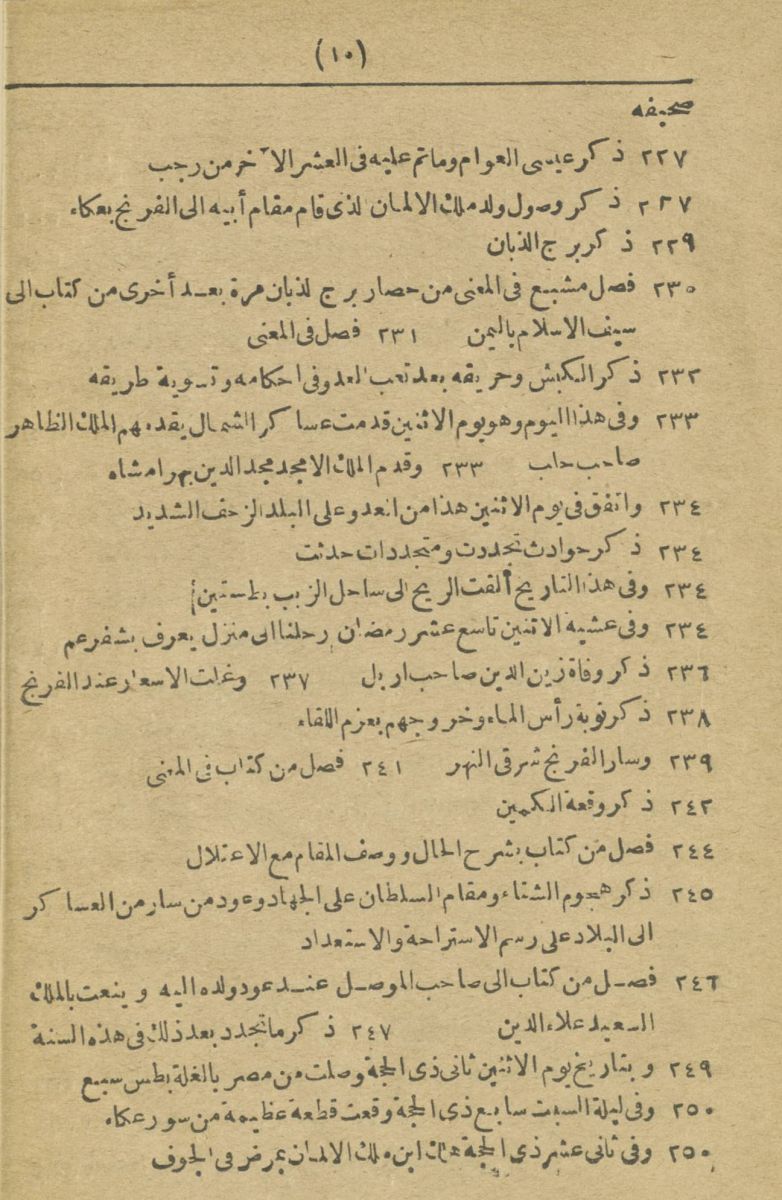 (١٠)
صحيفه
٢٢٧ ذكر عيسى العوام وما تم عليه فى العشر الآخر من رجب
٢٢٧ ذكر وصول ولد ملك الالمان لذى قام مقام أبيه الى الفرنج بعكاء
٢٢٩ ذكر برج الذبان
٢٣٠ فصل مشبع فى المعنى من حصار برج لذبان مرة بعد أخرى من كتاب الى
سيف الاسلام باليمن ٢٣١ فصل فى المعنى
٢٣٢ ذكر الكبش وحريقه بعد تعب العدو فى احكامه وتسوية طريقه
٢٣٣ وفى هذا اليوم وهو يوم الاثنين قدمت عساكر الشمال يقدمهم الملك الظاهر
صاحب حلب ٢٣٣ وقدم الملك الامجد مجد الدين بهرامشاه
٢٣٤ واتفق فى يوم الاثنين هذا من العدو على البلد الزحف الشديد
٢٣٤ ذكر حوادث تجددت ومتجددات حدثت
٢٣٤ وفى هذا التاريخ ألقت الريح الى ساحل الزيب بطستين
٢٣٤ وفى عشية الاثنين تاسع عشر رمضان رحلنا الى منزل يعرف بشفرعم
٢٣٦ ذكر وفاة زين الدين صاحب اربل ٢٣٧ وغلت الاسعار عند الفرنج
٢٣٨ ذكر نوبة رأس الماء وخروجهم بعزم اللقاء
٢٣٩ وسار الفرنج شرقى النهر ٢٤١ فصل من كتاب فى المعنى
٢٤٢ ذكر وقعة الكمين
٢٤٤ فصل من كتاب بشرح الحال ووصف المقام مع الاعتلال
٢٤٥ ذكر هجوم الشتاء ومقام السلطان على الجهاد وعود من سار من العساكر
الى البلاد على رسم الاستراحة والاستعداد
٢٤٦ فصل من كتاب الى صاحب الموصل عند عود ولده اليه وينعت بالملك
السعيد علاء الدين ٢٤٧ ذكر ما تجدد بعد ذلك فى هذه السنة
٢٤٩ وبتاريخ يوم الاثنين ثانى ذى الحجة وصلت من مصر بالغلة بطس سبع
٢٥٠ وفى ليلة السبت سابع ذى الحجة وقعت قطعة عظيمة من سور عكاء
٢٥٠ وفى ثانى عشر ذى الحجة هلك ابن ملك الالمان بمرض فى الجوف